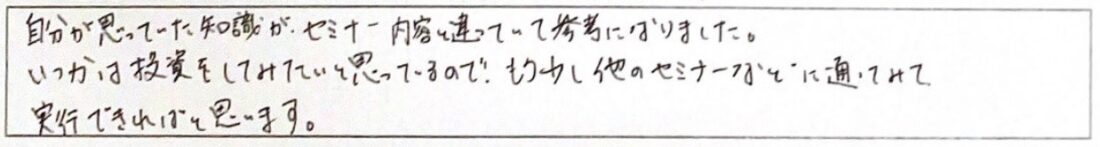 自分が思っていた知識が、セミナー内容と違っていて参考になりました。
いつかは投資をしてみたいと思っているので、もう少し他のセミナーなどに通ってみて
実行できればと思います。